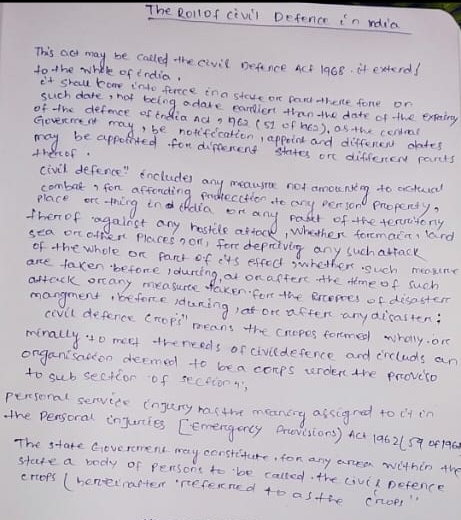 The Roll of civil Defence in ndia
This act may be called the civil Defence Act 1968. it extends
to the whole of india.
it shall come into force in a state or part there fore on
such date, not being a date earlier than the date of the expairy
of the defence of india Act, 1962 (51 of 1962), as the central
Goverment may, be notification, appoint and different dates
may be appointed for different states or different parts
thereof.
civil defence" includes any measure not amounting to actual
combat, for affording protecction to any person property,
place or thing in d india or any part of the territory
therof against any hostile attack, whether form air, land
sea or other places, or, fore depriving any such attack
of the whole or part of its effect, whether such measure
are taken before, during, at or aftere the time of such
attack or any measure taken for the of disaster
mangment, before, during, at or after any disaster;
civil defence crops" means the crops formed wholly or
minally to meet the needs of civil defence and includs an
organisation deemed to be a corps under the proviso
to sub section of section",
personal service injury has the meaning assigned to it in
the Personal injuries [Emergency Provisions) Act 1962 (59 of 1962
The state Goverment may constitute, for any area within the
state a body of persons to be called the civil Defence
crops (hereinafter referred to as the crops"